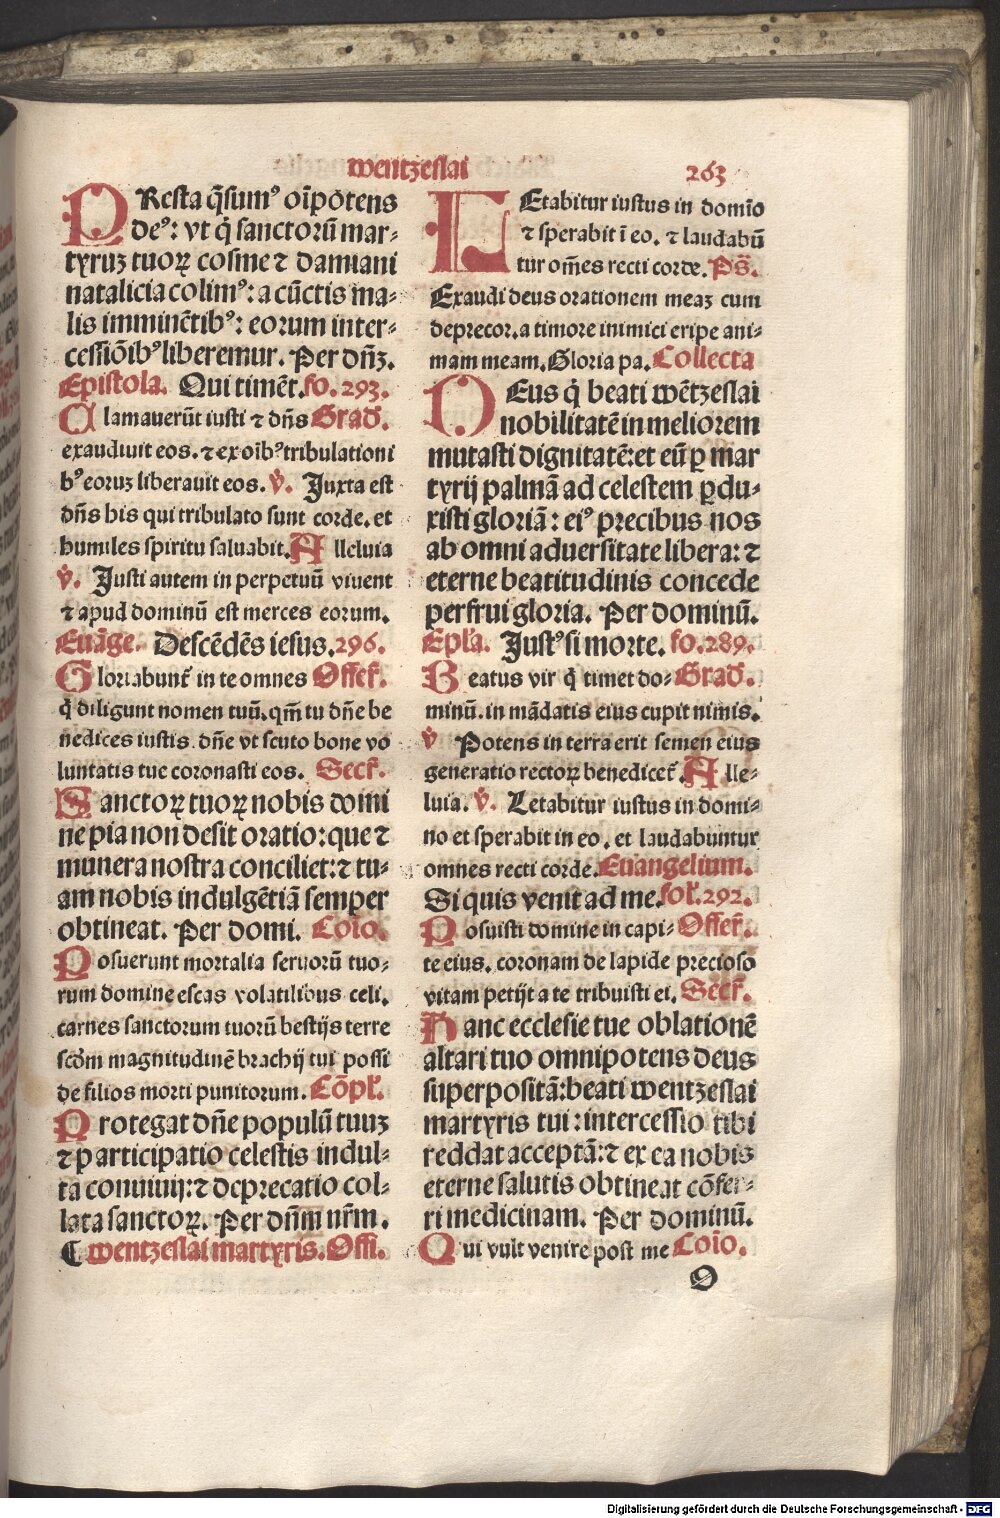 wentzeslai 263
PResta q̄sumꝰ oīpotens
deꝰ: vt q̇ sanctorū mar-
tyruꝫ tuoꝝ cosme ⁊ damiani
natalicia colimꝰ: a cūctis ma-
lis imminētibꝰ: eorum inter-
cessiōibꝰ liberemur. Per dn̄ꝫ.
Epistola. Qui timēt. fo. 293.
Clamauerūt iusti ⁊ dn̄s Grad̄.
exaudiuit eos. ⁊ ex oībꝰ tribulationi
bꝰ eoruꝫ liberauit eos. v̄. Juxta est
dn̄s his qui tribulato sunt corde. et
humiles spiritu saluabit. Alleluia
v̄. Justi autem in perpetuū viuent
⁊ apud dominū est merces eorum.
Euāge. Descēdēs iesus. 296.
Gloriabunt᷑ in te omnes Offer̄.
q̇ diligunt nomen tuū. qm̄ tu dn̄e be
nedices iustis. dn̄e vt scuto bone vo
luntatis tue coronasti eos. Secr̄.
Sanctoꝝ tuoꝝ nobis domi
ne pia non desit oratio: que ⁊
munera nostra conciliet: ⁊ tu-
am nobis indulgētiā semper
obtineat. Per domi. Coīo.
Posuerunt mortalia seruorū tuo-
rum domine escas volatilibus celi.
carnes sanctorum tuorū bestijs terre
scd̄m magnitudinē brachij tui possi
de filios morti punitorum. Cōpl̄.
Protegat dn̄e populū tuuꝫ
⁊ participatio celestis indul-
ta conuiuij: ⁊ deprecatio col-
lata sanctoꝝ. Per dn̄m nr̄m.
¶ wentzeslai martyris. Offi.
LEtabitur iustus in domīo
⁊ sperabit ī eo. ⁊ laudabū
tur om̄es recti corde. Ps̄.
Exaudi deus orationem meaꝫ cum
deprecor. a timore inimici eripe ani-
mam meam. Gloria pa. Collecta
DEus q̇ beati wētzeslai
nobilitatē in meliorem
mutasti dignitatē: et eū ꝑ mar
tyrij palmā ad celestem ꝑdu-
xisti gloriā: eiꝰ precibus nos
ab omni aduersitate libera: ⁊
eterne beatitudinis concede
perfrui gloria. Per dominū.
Epl̄a. Justꝰ si morte. fo. 289.
Beatus vir q̇ timet do- Grad̄.
minū. in mādatis eius cupit nimis.
v̄ Potens in terra erit semen eius
generatio rectoꝝ benedicet᷑. Alle-
luia. v̄. Letabitur iustus in domi-
no et sperabit in eo. et laudabuntur
omnes recti corde. Euangelium.
Si quis venit ad me. fol̄. 292.
Posuisti domine in capi- Offer̄.
te eius. coronam de lapide precioso
vitam petijt a te tribuisti ei. Secr̄.
Hanc ecclesie tue oblationē
altari tuo omnipotens deus
superpositā: beati wentzeslai
martyris tui: intercessio tibi
reddat acceptā: ⁊ ex ea nobis
eterne salutis obtineat cōfer-
ri medicinam. Per dominū.
Qui vult venire post me Coīo.
Digitalisierung gefördert durch die Deutsche Forschungsgemeinschaft - DFG